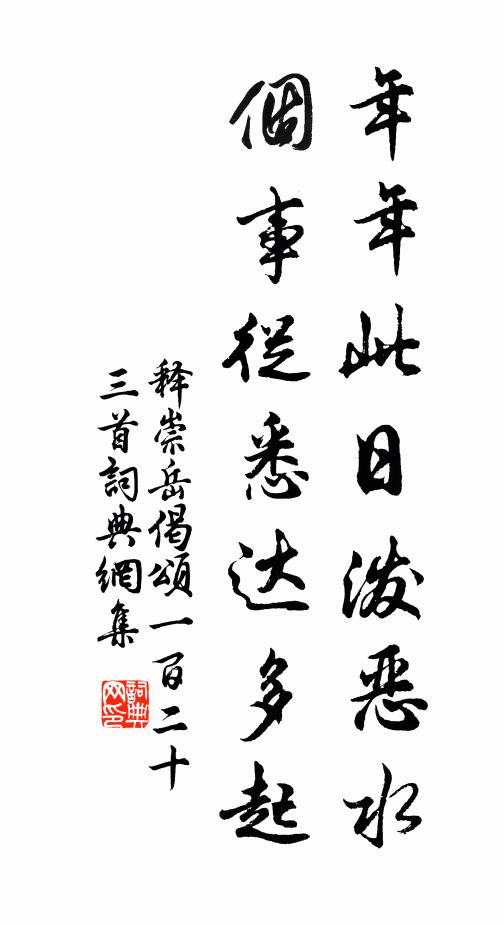 年年此日泼恶水
個事從悉达多起
释崇岳偈頌一百二十
三首詞典網集
詞典
网印